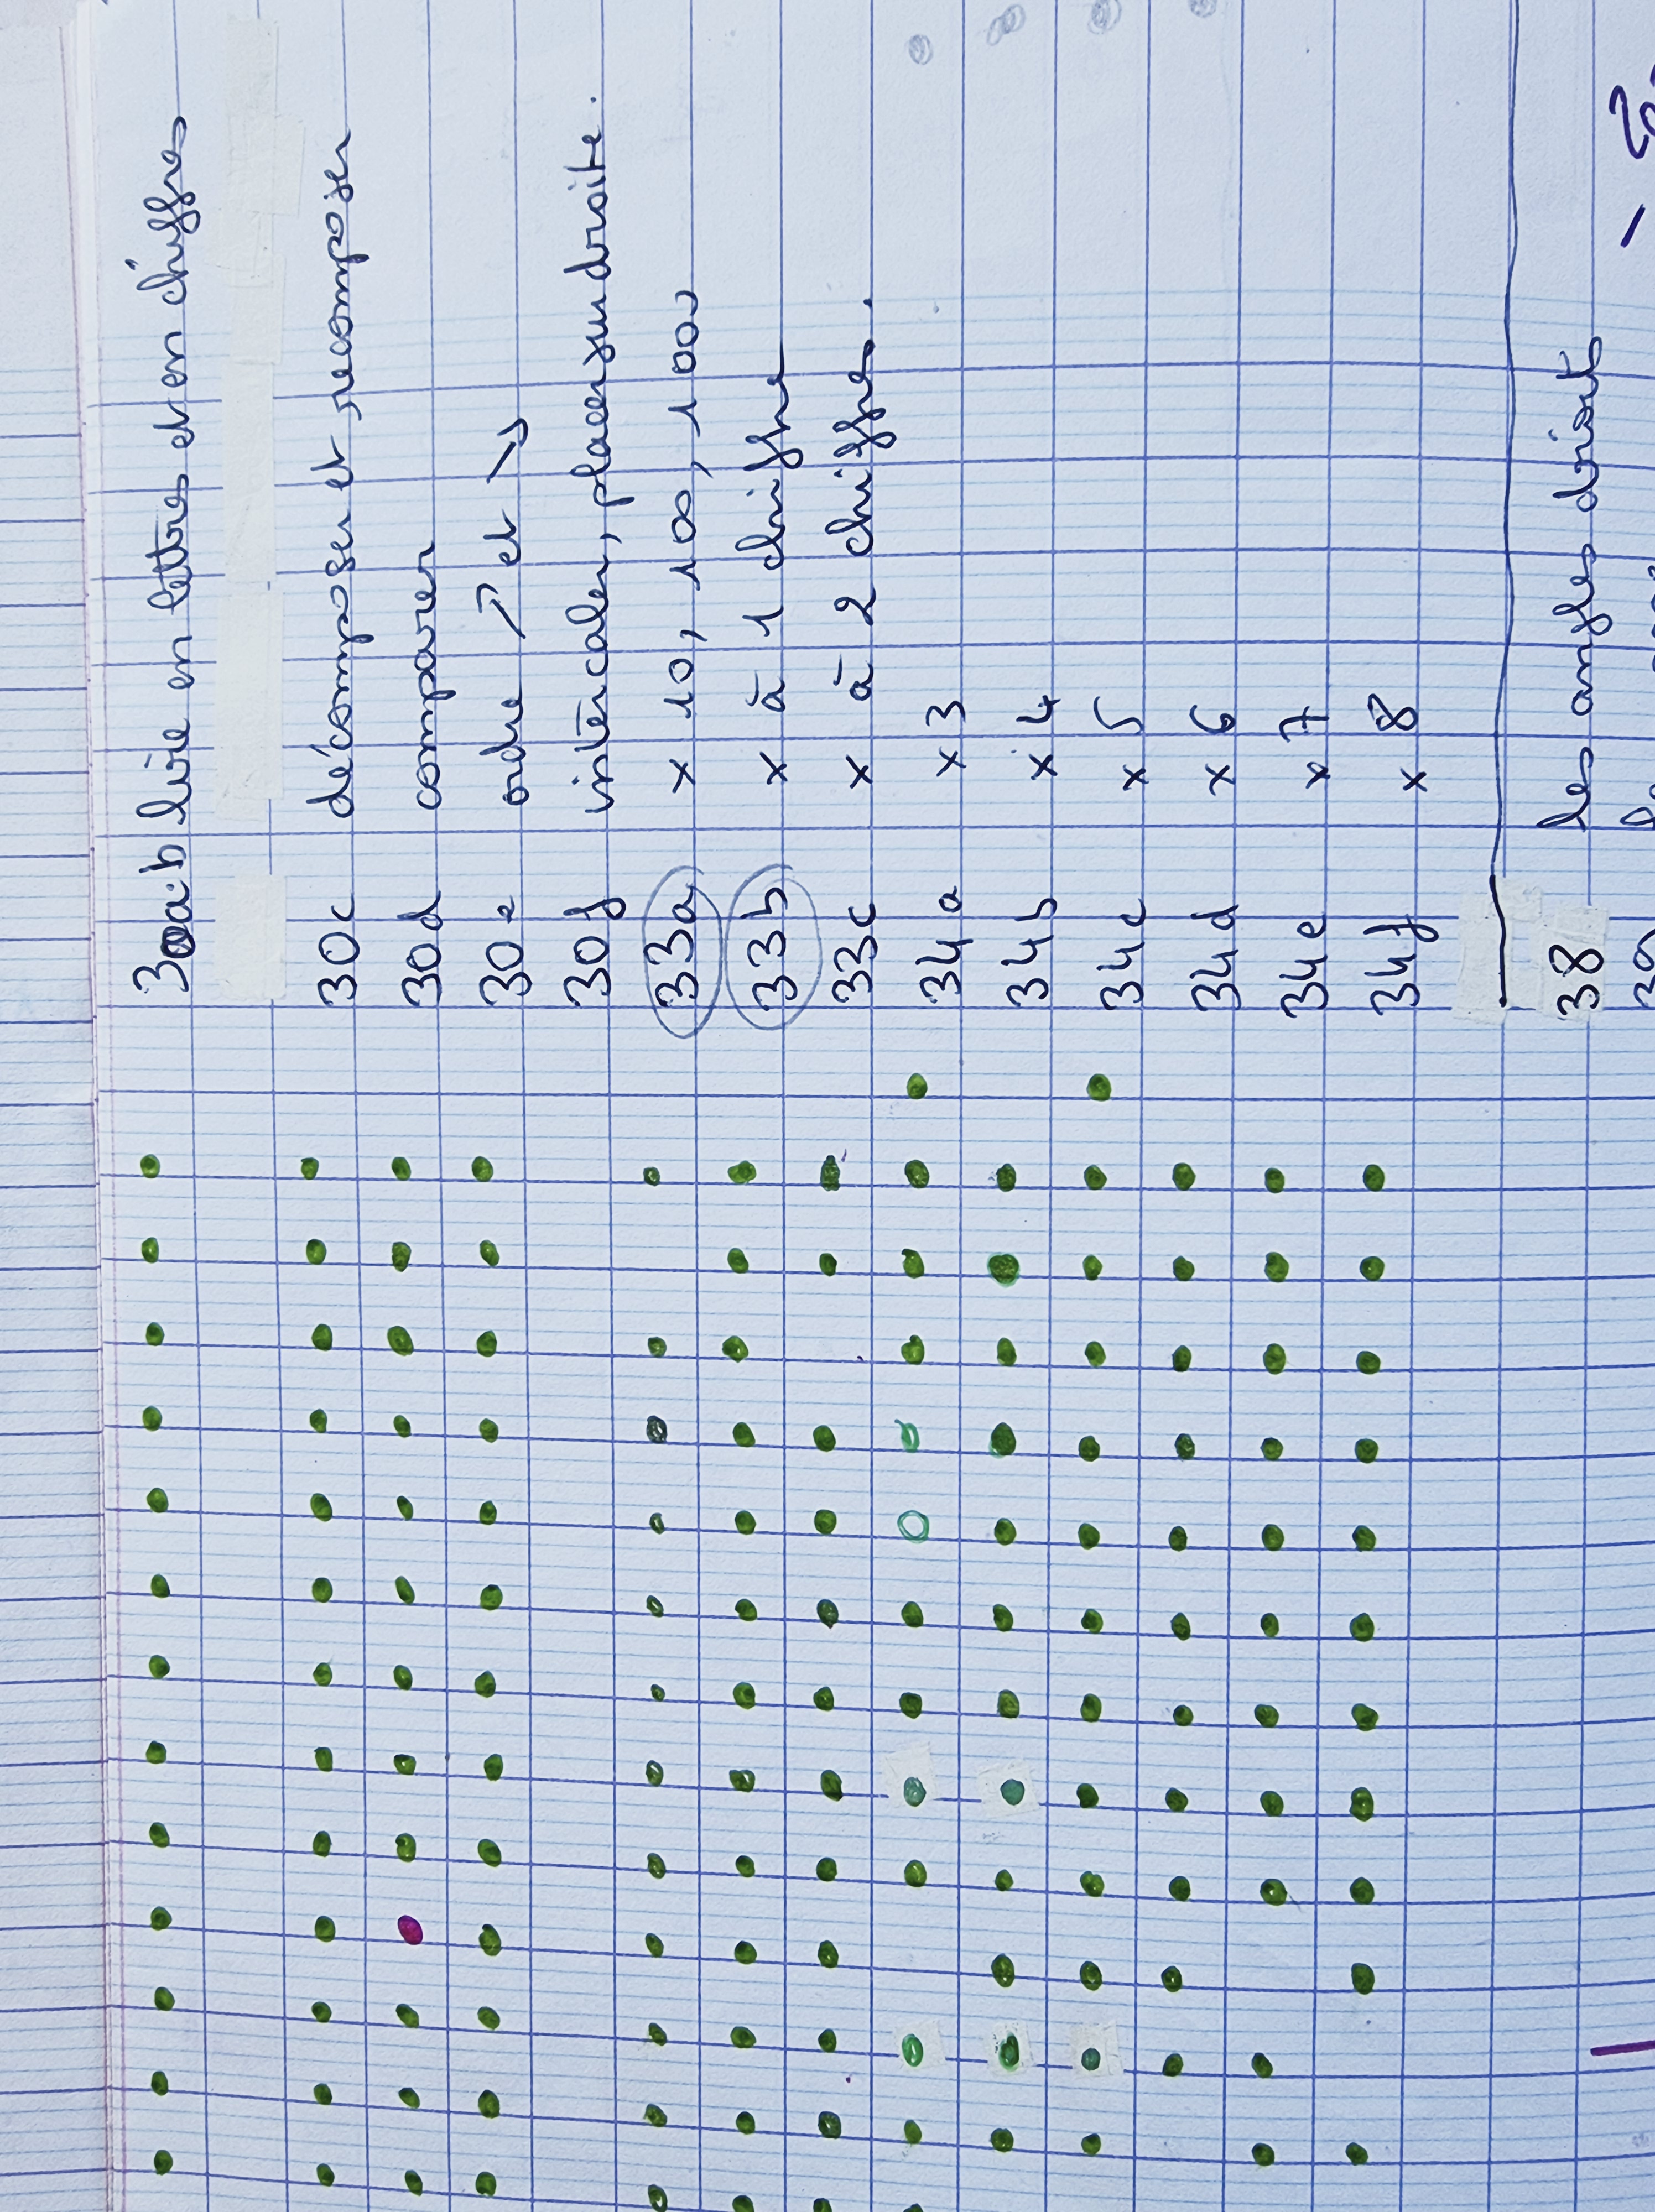 30ab lire en lettres et en chiffres
30c décomposer et recomposer
30d comparer
30e ordre ↗ et ↘
30f intercaler, placer sur droite.
33a × 10, 100, 1000
33b × à 1 chiffre
33c × à 2 chiffres.
34a × 3
34b × 4
34c × 5
34d × 6
34e × 7
34f × 8
38 les angles droits